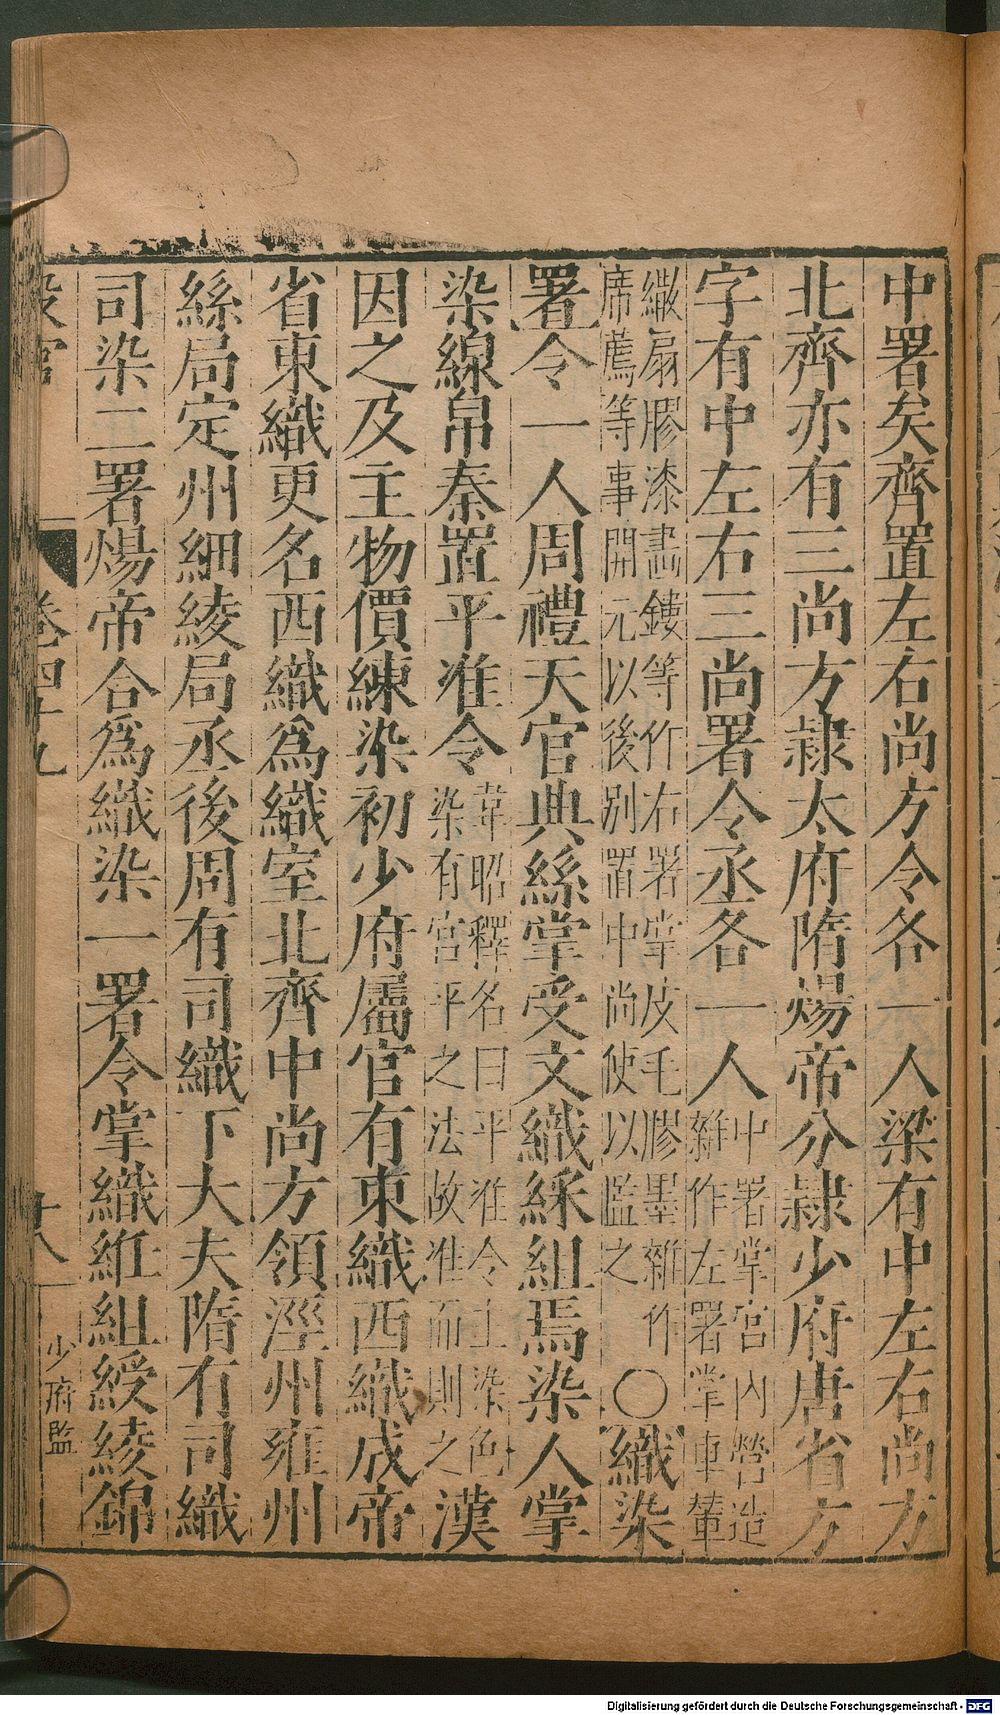 中署矣齊置左右尚方令各一人梁有中左右尚方
北齊亦有三尚方隷太府隋煬帝分隷少府唐省方
字有中左右三尚署令丞各一人中署掌宮内營造
雜作左署掌車輦
繖扇膠漆畵鏤等作右署掌皮毛膠墨雜作
席薦等事開元以後別置中尚使以監之
○織染
署令一人周禮天官典絲掌受文織綵組焉染人掌
染線帛秦置平准令韋昭釋名曰平准令主染色
染有宮平之法故准而則之漢
因之及主物價練染初少府屬官有東織西織成帝
省東織更名西織爲織室北齊中尚方領涇州雍州
絲局定州細綾局丞後周有司織下大夫隋有司織
司染二署煬帝合爲織染一署令掌織紝組綬綾錦
卷四十九
十八
少府監
Digitalisierung gefördert durch die Deutsche Forschungsgemeinschaft - DFG